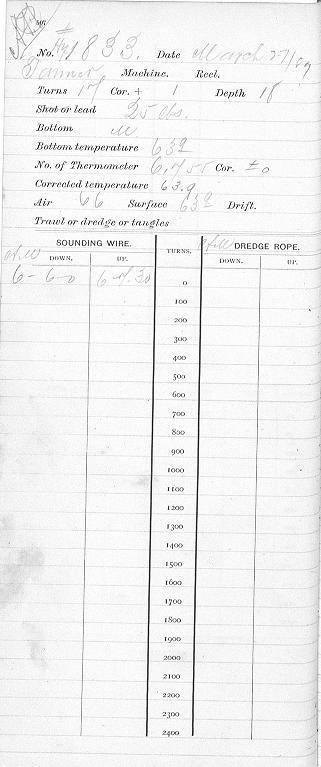 No. Hyd 833. Date March 27/89
Tanner Machine. Reel.
Turns 17 Cor. + 1 Depth 18
Shot or lead 25 lbs.
Bottom M
Bottom temperature 63.9
No. of Thermometer Cor. ± 0
Corrected temperature 63.9
Air 66 Surface 63.9 Drift.
Trawl or dredge or tangles
SOUNDING WIRE. TURNS. DREDGE ROPE.
DOWN. UP. DOWN. UP.
6-6-0 0
100
200
300
400
500
600
700
800
900
1000
1100
1200
1300
1400
1500
1600
1700
1800
1900
2000
2100
2200
2300
2400